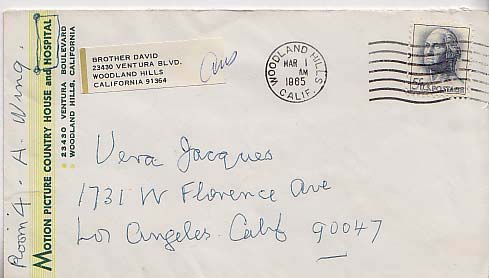 Room 4 - A - Wing.
MOTION PICTURE COUNTRY HOUSE and HOSPITAL
23430 VENTURA BOULEVARD
WOODLAND HILLS, CALIFORNIA
BROTHER DAVID
23430 VENTURA BLVD.
WOODLAND HILLS
CALIFORNIA 91364
ans
WOODLAND HILLS
MAR 1
AM
1965
CALIF.
5¢ U.S. POSTAGE
Vera Jacques
1731 W Florence Ave
Los Angeles. Calif 90047